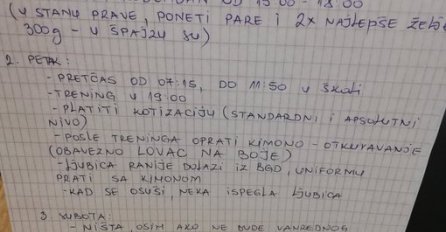 OD 15:00 - 18:00
(U STANU PRAVE, PONETI PARE I 2x NAJLEPŠE ŽELE
300g - U ŠPAJZU SU)
2. PETAK:
- PRETČAS OD 07:15, DO 11:50 U ŠKOLI
- TRENING U 19:00
- PLATITI KOTIZACIJU (STANDARDNI I APSOLUTNI
NIVO)
- POSLE TRENINGA OPRATI KIMONO - OTKUVAVANJE
(OBAVEZNO LOVAC NA BOJE)
- LJUBICA RANIJE DOLAZI IZ BGD, UNIFORMU
PRATI SA KIMONOM
- KAD SE OSUŠI, NEKA ISPEGLA LJUBICA
3. SUBOTA:
- NIŠTA, OSIM AKO NE BUDE VANREDNOG